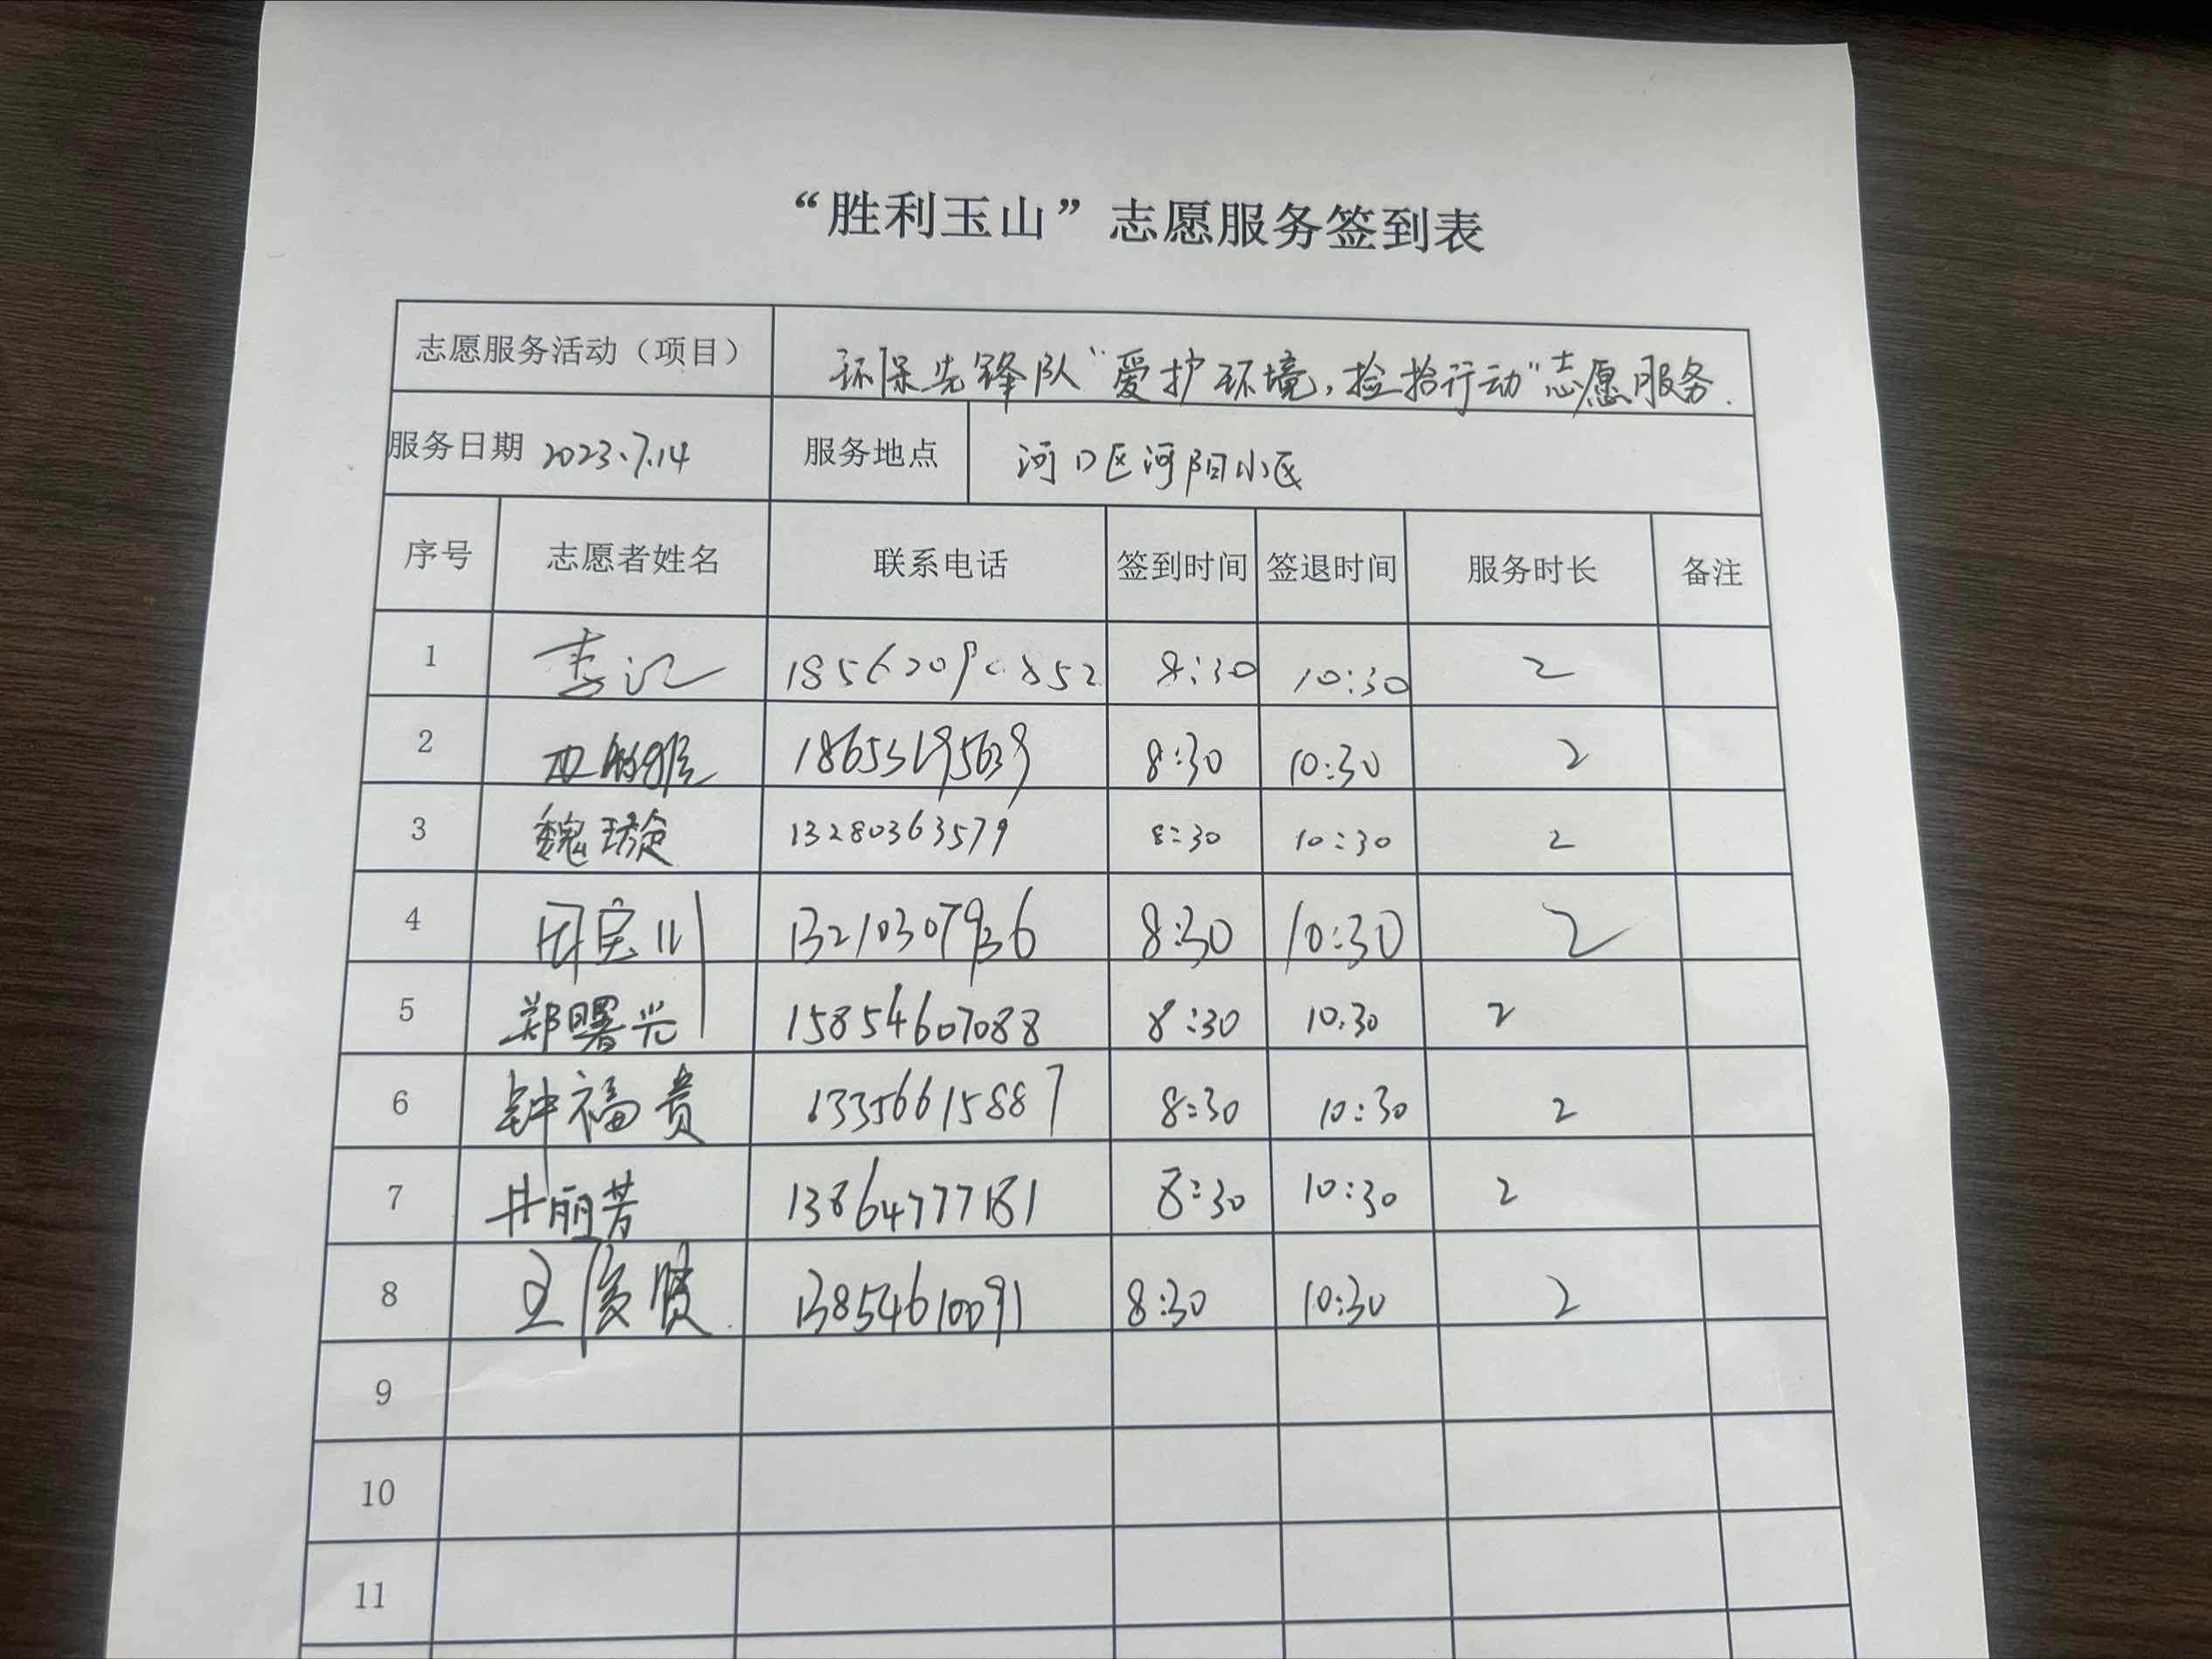 “胜利玉山”志愿服务签到表
志愿服务活动（项目） 环保先锋队“爱护环境，捡拾行动”志愿服务.
服务日期 2023.7.14 服务地点 河口区河阳小区
序号 志愿者姓名 联系电话 签到时间 签退时间 服务时长 备注
1 18562090852 8:30 10:30 2
2 18653195639 8:30 10:30 2
3 魏璇 13280363579 8:30 10:30 2
4 周宝川 13210307936 8:30 10:30 2
5 郑曙光 15854607088 8:30 10:30 2
6 钟福贵 13356615887 8:30 10:30 2
7 井丽芳 13864777181 8:30 10:30 2
8 王俊贤 13854610091 8:30 10:30 2
9
10
11